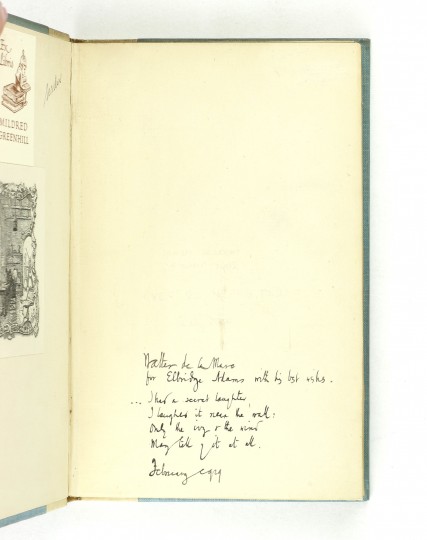 Ex
Libris
MILDRED
GREENHILL
Walter de la Mare
for Elbridge Adams with his best wishes.
... I had a secret laughter,
I laughed it near the wall:
Only the ivy & the wind
May tell of it at all.
February